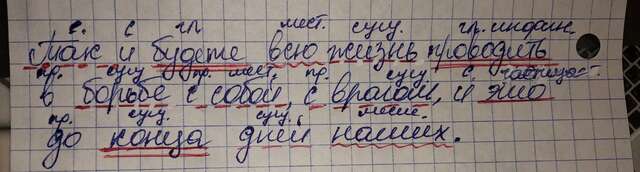 с. с гл. мест. сущ. гл. инфин.
Так и будете всю жизнь проводить
пр. сущ. пр. мест. пр. сущ. с. частица.
в борьбе с собой, с врагом, и это
пр. сущ. сущ. мест.
до конца дней наших.